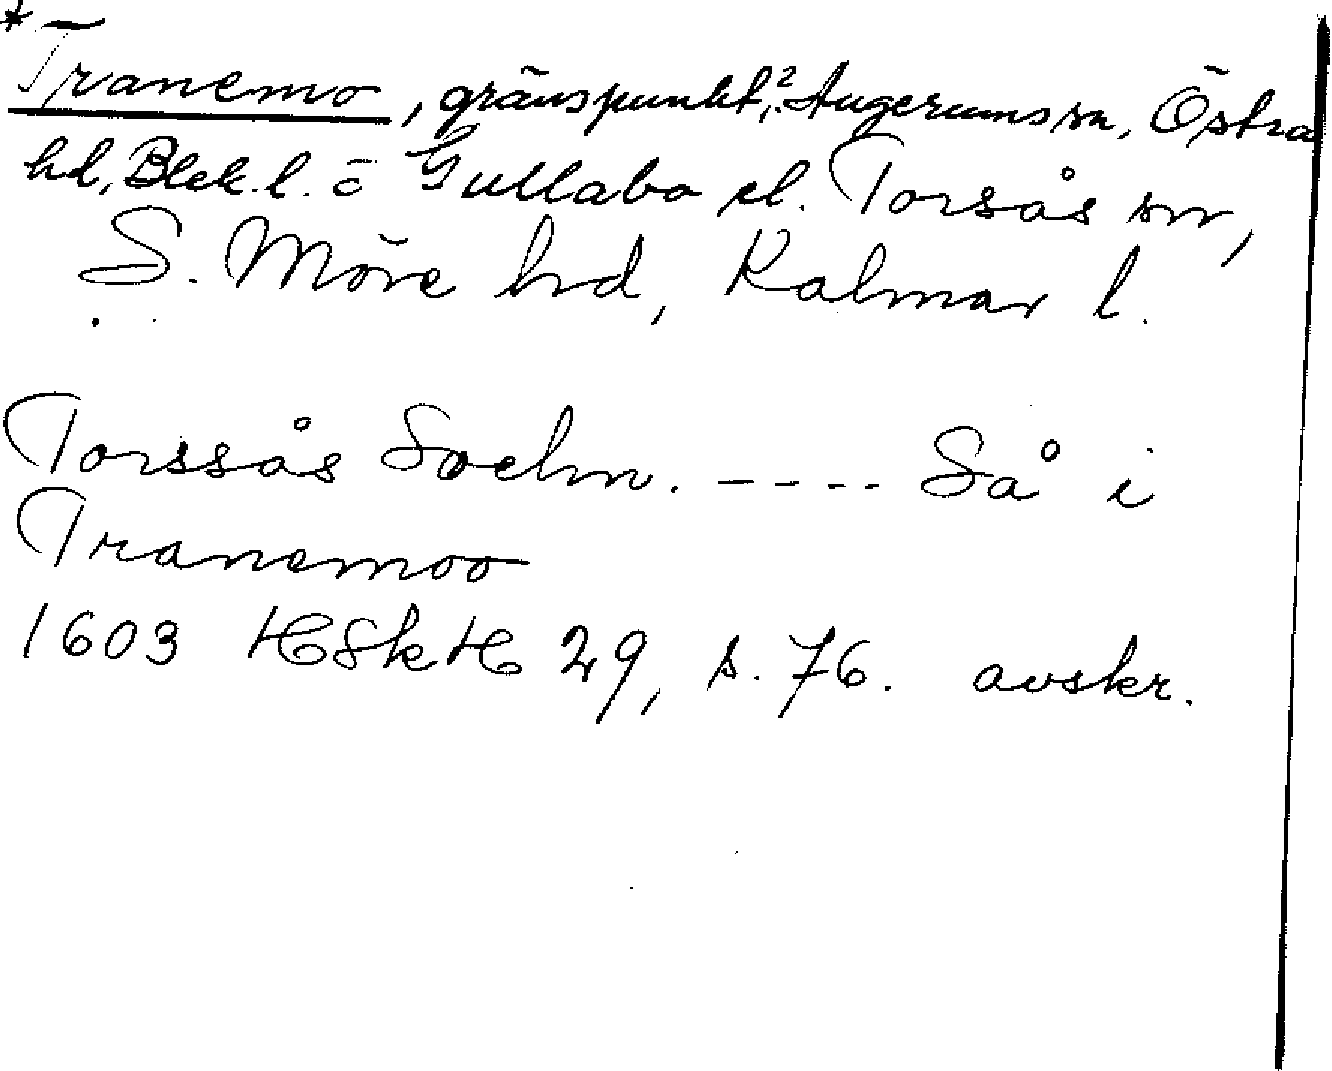 *Tranemo, gränspunkt,? Augerums sn, Östra
hd, Blek. l. o Gullabo el. Torsås sn,
S. Möre hd, Kalmar l.
Torssås Sochn. ---- Så i
Tranemoo
1603 HSkH 29, s. 76. avskr.